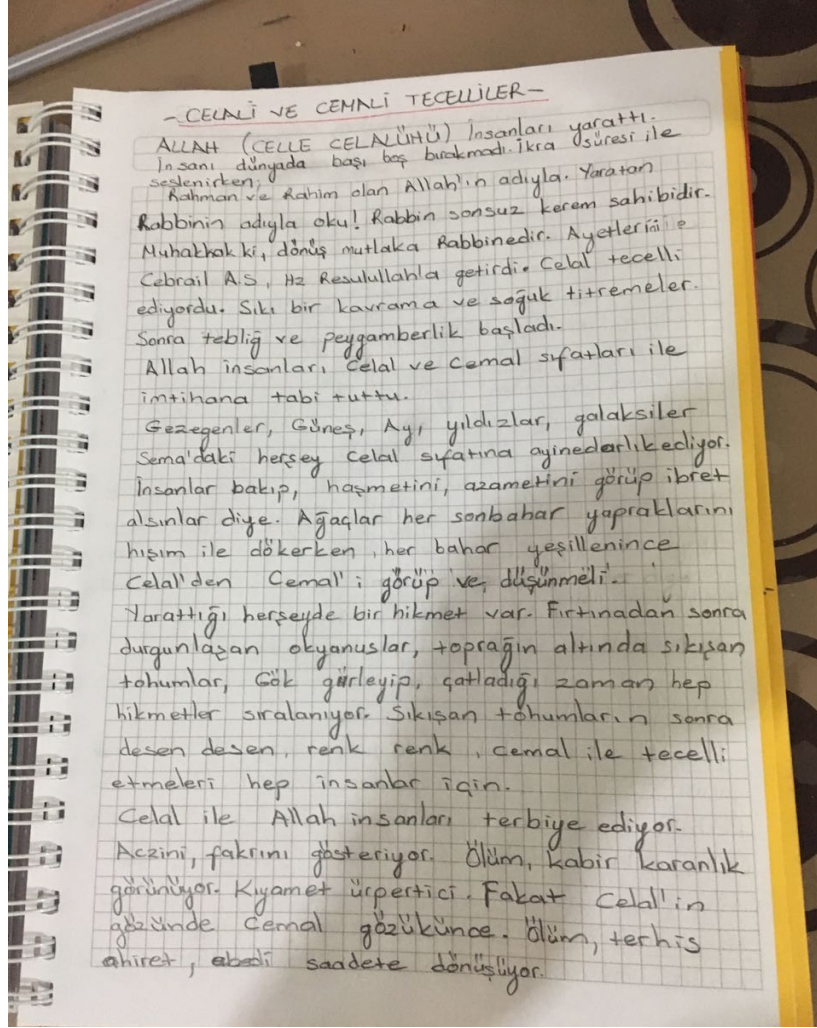 - CELALİ VE CEMALİ TECELLİLER -
ALLAH (CELLE CELALÜHÜ) İnsanları yarattı.
İnsanı dünyada başı boş bırakmadı. İkra süresi ile
seslenirken;
Rahman ve Rahim olan Allah'ın adıyla. Yaratan
Rabbinin adıyla oku! Rabbin sonsuz kerem sahibidir.
Muhakkak ki, dönüş mutlaka Rabbinedir. Ayetlerini
Cebrail A.S, Hz Resulullahla getirdi. Celal tecelli
ediyordu. Sıkı bir kavrama ve soğuk titremeler.
Sonra tebliğ ve peygamberlik başladı.
Allah insanları Celal ve Cemal sıfatları ile
imtihana tabi tuttu.
Gezegenler, Güneş, Ay, yıldızlar, galaksiler
Sema'daki herşey Celal sıfatına ayinedarlık ediyor.
İnsanlar bakıp, haşmetini, azametini görüp ibret
alsınlar diye. Ağaçlar her sonbahar yapraklarını
hışım ile dökerken, her bahar yeşillenince
Celal'den Cemal'i görüp ve, düşünmeli.
Yarattığı herşeyde bir hikmet var. Fırtınadan sonra
durgunlaşan okyanuslar, toprağın altında sıkışan
tohumlar, Gök gürleyip, çatladığı zaman hep
hikmetler sıralanıyor. Sıkışan tohumların sonra
desen desen, renk renk, cemal ile tecelli
etmeleri hep insanlar için.
Celal ile Allah insanları terbiye ediyor.
Aczini, fakrını gösteriyor. Ölüm, kabir karanlık
görünüyor. Kıyamet ürpertici. Fakat Celal'in
gözünde Cemal gözükünce. Ölüm, terhis
ahiret, ebedi saadete dönüşüyor.